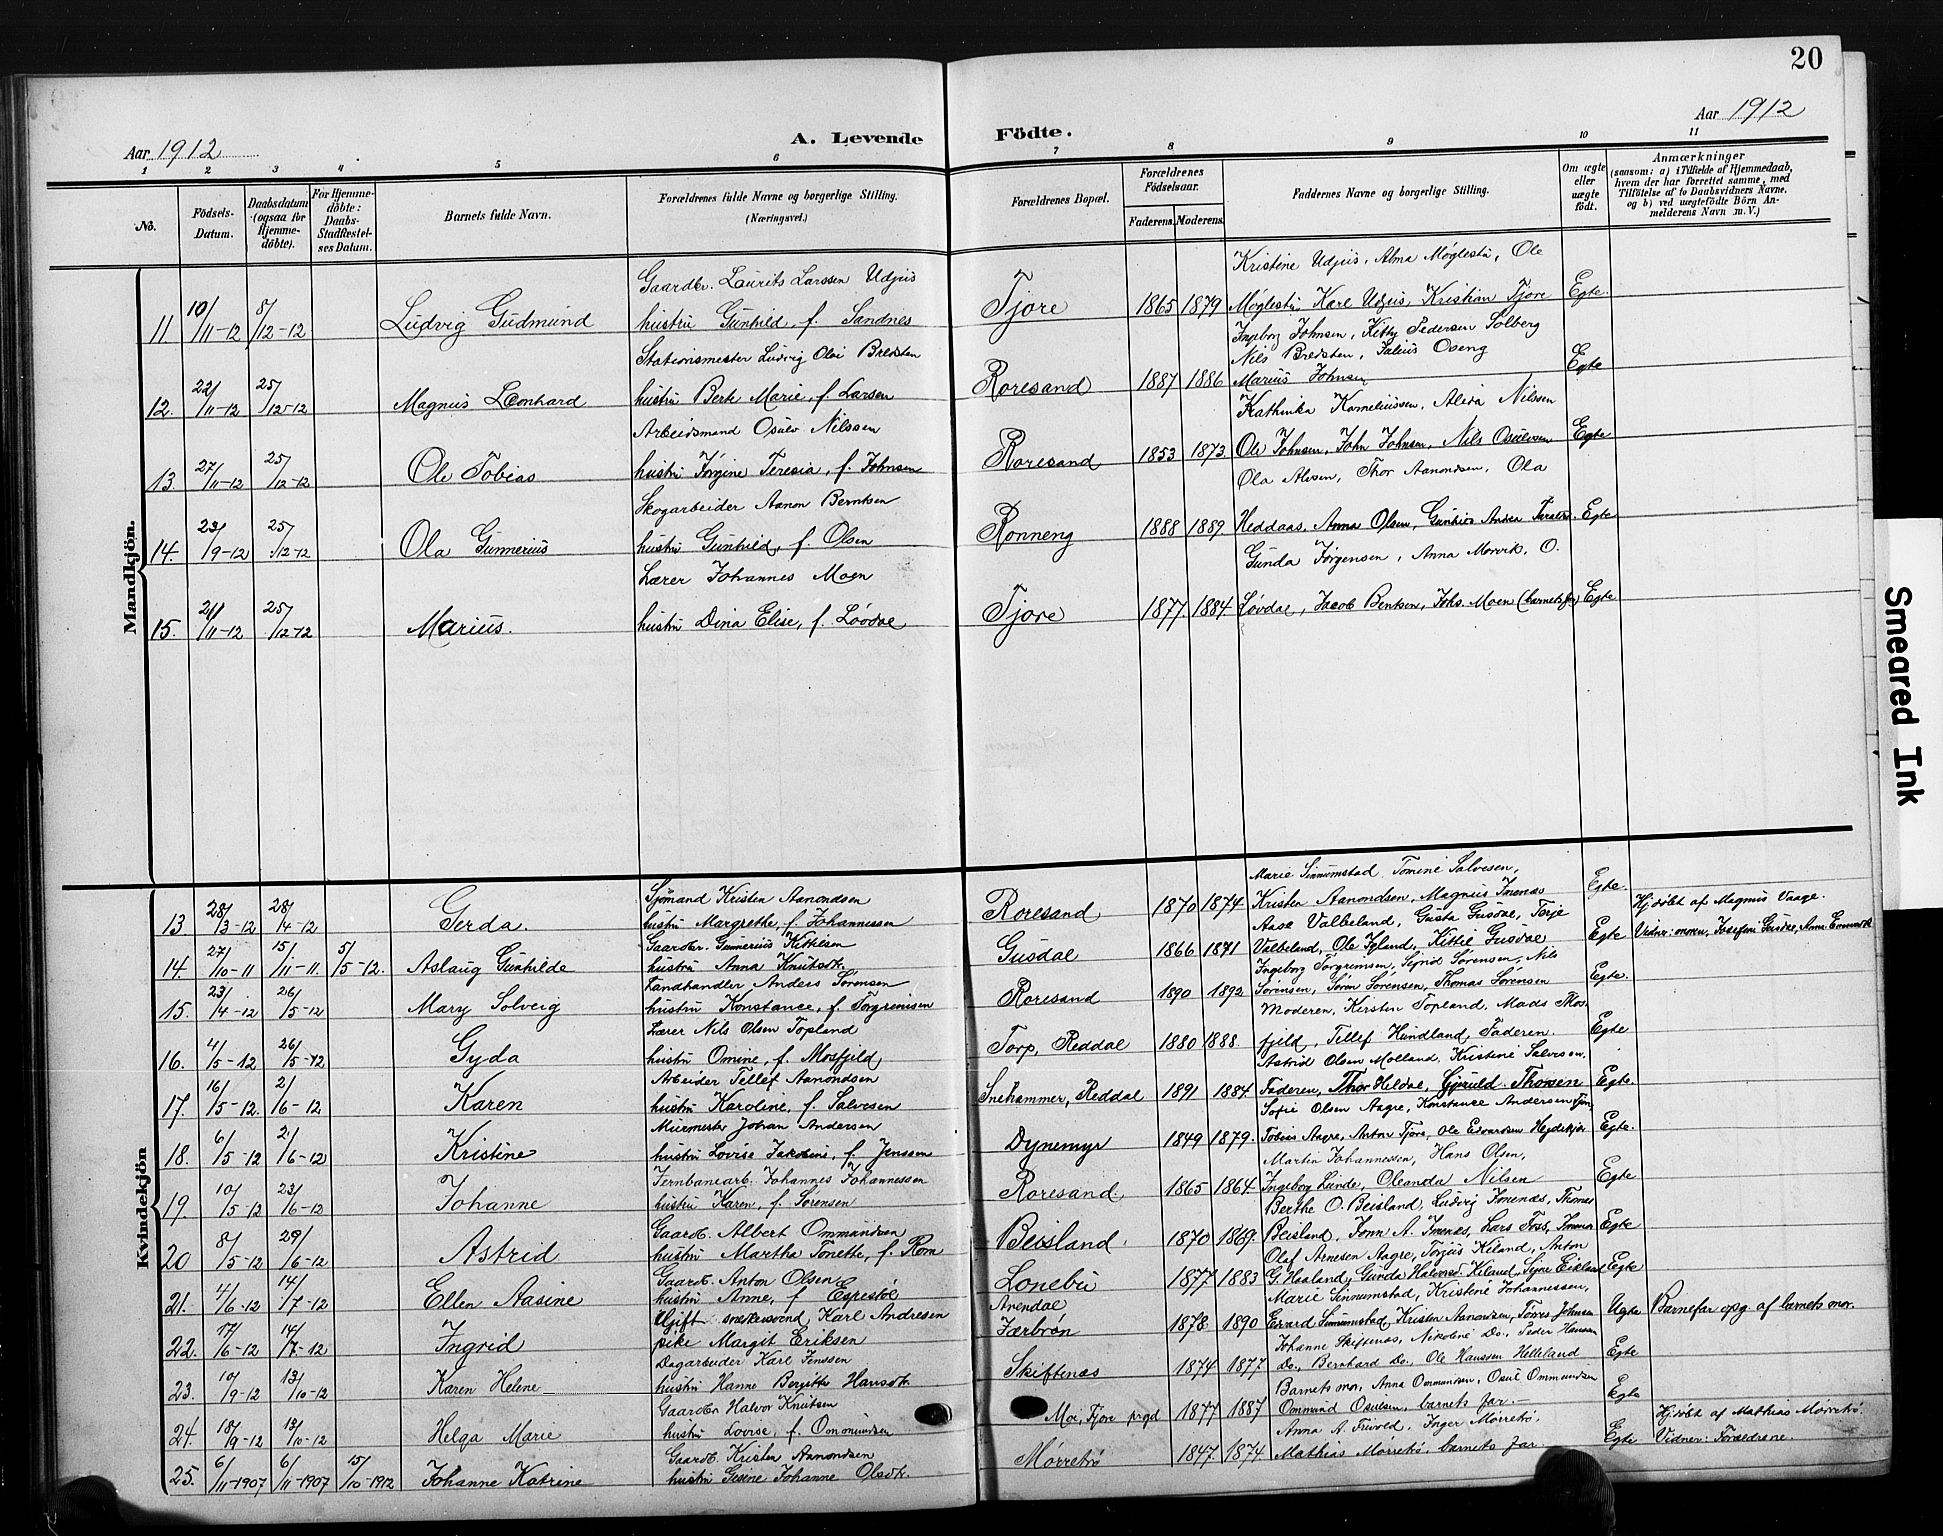 20
Aar 1912
A. Levende
Födte.
Aar 1912
1 2 3 4 5 6 7 8 9 10 11
No.
Födsels-Datum.
Daabsdatum (ogsaa for Hjemme-döbte).
For Hjemme-döbte: Daabs-Stadfestel-ses Datum.
Barnets fulde Navn.
Forældrenes fulde Navne og borgerlige Stilling. (Næringsvei.)
Forældrenes Bopæl.
Forældrenes Födselsaar.
Faderens. Moderens.
Faddernes Navne og borgerlige Stilling.
Om ægte eller uægte födt.
Anmærkninger
(saasom: a) i Tilfælde af Hjemmedaab, hvem der har forrettet samme, med Tilföielse af to Daabsvidners Navne, og b) ved uægtefödte Börn An-melderens Navn m. V.)
Mandkjön.
Gaardbr. Laurits Larssen Udjus
Kristine Udjus, Alma Møglestu, Ole
11 10/11-12 8/12-12 Ludvig Gudmund hustru Gunhild, f. Sandnes Fjore 1865 1879 Møglestu, Karl Udjus, Kristian Fjore Egte.
Stationsmester Ludvig Olai Bredsten
Ingeborg Johnsen, Kitty Pedersen Solberg
Nils Bredsten, Julius Oseng
12. 22/11-12 25/12-12 Magnus Leonhard hustru Berte Marie, f. Larsen Roresand 1887 1886 Marius Johnsen Egte
Arbeidsmand Osulv Nilssen
Kathinka Korneliussen, Alida Nilssen
13. 27/11-12 25/12-12 Ole Tobias hustru Jørgine Teresia, f. Johnsen Roresand 1853 1873. Ole Johnsen, John Johnsen, Nils Osulvsen Egte
Skogarbeider Aanon Berntsen
Ola Alvsen, Thor Aanondsen, Ola
14. 23/9-12 25/12-12 Ola Gunnerius hustru Gunhild, f. Olsen Ronneng 1888 1889. Heddaas, Anna Olsen, Andrea Egte
Lærer Johannes Moen
Gunda Jørgensen, Anna Morvik, O.
15. 21/11-12 25/12-12 Marius. hustru Dina Elise, f. Løvdal Fjore 1877. 1884 Løvdal, Jacob Bentsen, Johs. Moen (barnets far) Egte
Kvindekjön
Sjömand Kristen Aanondsen
Marie Sinnumstad, Tomine Salvesen,
13. 28/3-12 28/4-12 Gerda. hustru Margrethe, f. Johannessen Roresand 1870 1874 Kristen Aanondsen, Magnus Imenæs Egte.
Gaardbr. Gunnerius Kittilsen
Aase Valbeland, Gusta Gusdal, Terje
Hjdøbt af Magnus Vaage.
14. 27/10-11 15/11-11. 5/5-12. Aslaug Gunhilde hustru Anna Knutsdtr. Gusdal 1866 1871 Valbeland, Ole Igland, Kittil Gusdal Egte Vidner: moren, Josefine Gusdal, Anna
Landhandler Anders Sørensen
Ingeborg Torgrimsen, Sigrid Sørensen, Nils
15. 23/4-12 26/5-12 Mary Solveig hustru Konstance, f. Torgrimsen Roresand 1890 1892 Sørensen, Søren Sørensen, Thomas Sørensen Egte.
Lærer Nils Olsen Topland
Moderen, Kirsten Topland, Mads Thos.
16. 4/5-12 26/5-12 Gyda hustru Omine, f. Mosfjeld, Torp, Reddal 1880 1888. fjeld, Tellef Hundland, Faderen. Egte
Arbeider Tellef Aamondsen
Astrid Olsen Molland, Kristine Salvesen,
17. 16/5-12. 2/6-12 Karen hustru Karoline, f. Salvesen Snehammer, Reddal 1891 1884 Faderen, Thor Heldal, Gjeruld Thorsen Egte.
Murmester Johan Andersen
Sofie Olsen Aagre, Konstance Andersen
18. 6/5-12 2/6-12 Kristine hustru Lovise Jakobine, f. Jenssen Dynemyr 1849 1879. Tobias Aagre, Anton Fjore, Ole Edvardsen Egte.
Jernbanearb. Johannes Johannessen
Martin Johannessen, Hans Olsen,
19. 10/5-12 23/6-12 Johanne hustru Karen, f. Sørensen Roresand. 1865 1864. Ingeborg Lunde, Oleanda Nilsen Egte
Gaardb. Albert Ommundsen
Berthe O. Beisland, Ludvig Imenæs, Thomas
20 8/5-12 29/6-12 Astrid hustru Martha Tonette, f. Rom Beisland 1870 1869. Beisland, Tom A. Imenæs, Lars Foss, Egte
Gaardb. Anton Olsen
Olaf Arnesen Aagre, Torjus Kiland, Anton
21. 4/6-12 14/7-12 Ellen Aasine hustru Anne, f Egrestøl Lonebu 1877 1883 G. Haaland, Gunda Halvorsd. Kiland, Signe Eikland Egte
Ugift snekkersvend Karl Andresen
Arendal
Marie Sinnumstad, Kristine Johannessen,
22. 17/6-12 14/7-12 Ingrid pike Margit Eriksen Færbrøn 1878 1890 Edvard Sinnumstad, Kristen Aanondsen, Torvus Johnsen Ugte Barnefar opg. af barnets mor.
Dagarbeider Karl Jenssen
Johanne Skiftenæs, Nikoline Do., Peder Hansen
23. 10/9-12 13/10-12 Karen Helene hustru Hanne Bergitte Hansdtr. Skiftenæs 1874 1877 Do., Bernhard Do., Ole Hanssen Helleland Egte
Gaardbr Halvor Knutsen
Barnets mor, Anna Ommundsen, Osul Ommundsen
24. 18/9-12 13/10-12 Helga Marie hustru Lovise, f. Ommundsen Moi, Fjore prgd 1877 1887 Ommund Osulsen, barnets far. Egte
Gaardb. Kristen Aamondsen
Anna A. Frivold, Inger Mørretrø,
Hjdøbt af Mathias Mørretrø.
25. 6/11-1907 6/11-1907 15/10-1912 Johanne Katrine hustru Gesine Johanne Olsdtr. Mørretrø 1847. 1874. Mathias Mørretrø, barnets far. Egte Vidner: Forældrene.
Smeared Ink